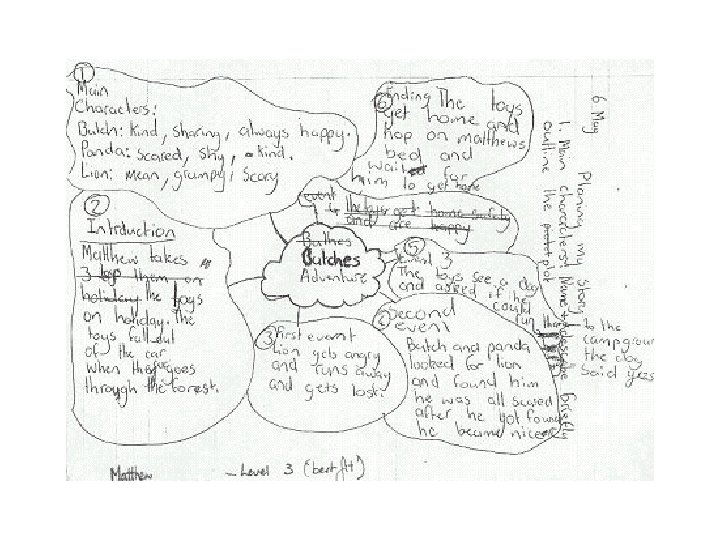 6 May
Planing my story
1. Main characters: Name + describe briefly
outline the plot
①
Main
Characters:
Butch: Kind, sharing, always happy.
Panda: Scared, shy, kind.
Lion: Mean, grumpy, Scary
②
Intrduction
Matthew takes
3 them on
holiday The toys
on holiday. The
toys fall out
of the car
when the car goes
through the forest.
Butches
Adventure
③ First event
Lion gets angry
and runs away
and gets lost.
④ Second
event
Butch and panda
looked for lion
and found him
he was all scared
after he got found
he became nicer
⑤
event 3
The toys see a dog
and asked if he
could
run them
to the
campground
the dog
said yes
event 4
The toys get home safely
and are happy
⑥ Ending The toys
get home and
hop on matthews
bed and
wait for
him to get home
Matthew
- Level 3 (best fit)